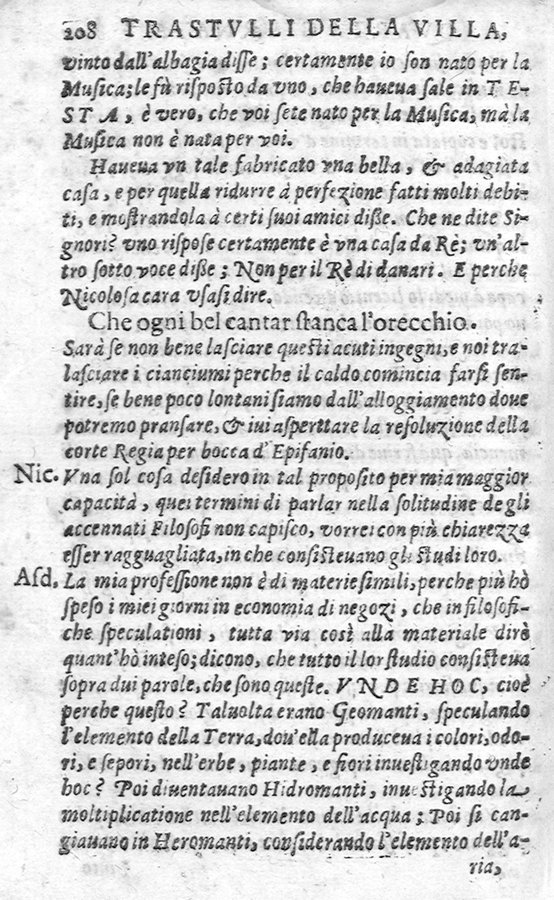 208 TRASTVLLI DELLA VILLA,
vinto dall'albagia disse; certamente io son nato per la
Musica; le fù risposto da vno, che haueua sale in TE-
STA, è vero, che voi sete nato per la Musica, mà la
Musica non è nata per voi.
Haueua vn tale fabricato vna bella, & adagiata
casa, e per quella ridurre à perfezione fatti molti debi-
ti, e mostrandola à certi suoi amici disse. Che ne dite Si-
gnori? vno rispose certamente è vna casa da Rè; vn'al-
tro sotto voce disse; Non per il Rè di danari. E perche
Nicolosa cara vsasi dire.
Che ogni bel cantar stanca l'orecchio.
Sarà se non bene lasciare questi acuti ingegni, e noi tra-
lasciare i cianciumi perche il caldo comincia farsi sen-
tire, se bene poco lontani siamo dall'alloggiamento doue
potremo pransare, & iui asperttare la resoluzione della
corte Regia per bocca d'Epifanio.
Nic. Vna sol cosa desidero in tal proposito per mia maggior
capacità, quei termini di parlar nella solitudine degli
accennati Filosofi non capisco, vorrei con più chiarezza
esser ragguagliata, in che consisteuano gli studi loro.
Asd. La mia professione non è di materie simili, perche più hò
speso i miei giorni in economia di negozi, che in filosofi-
che speculationi, tutta via così alla materiale dirò
quant'hò inteso; dicono, che tutto il lor studio consisteua
sopra dui parole, che sono queste. VNDE HOC, cioè
perche questo? Taluolta erano Geomanti, speculando
l'elemento della Terra, dou'ella produceua i colori, odo-
ri, e sepori, nell'erbe, piante, e fiori inuestigando vnde
hoc? Poi diuentauano Hidromanti, inuestigando la
moltiplicatione nell'elemento dell'acqua; Poi si can-
giauano in Heromanti, considerando l'elemento dell'a-
ria,